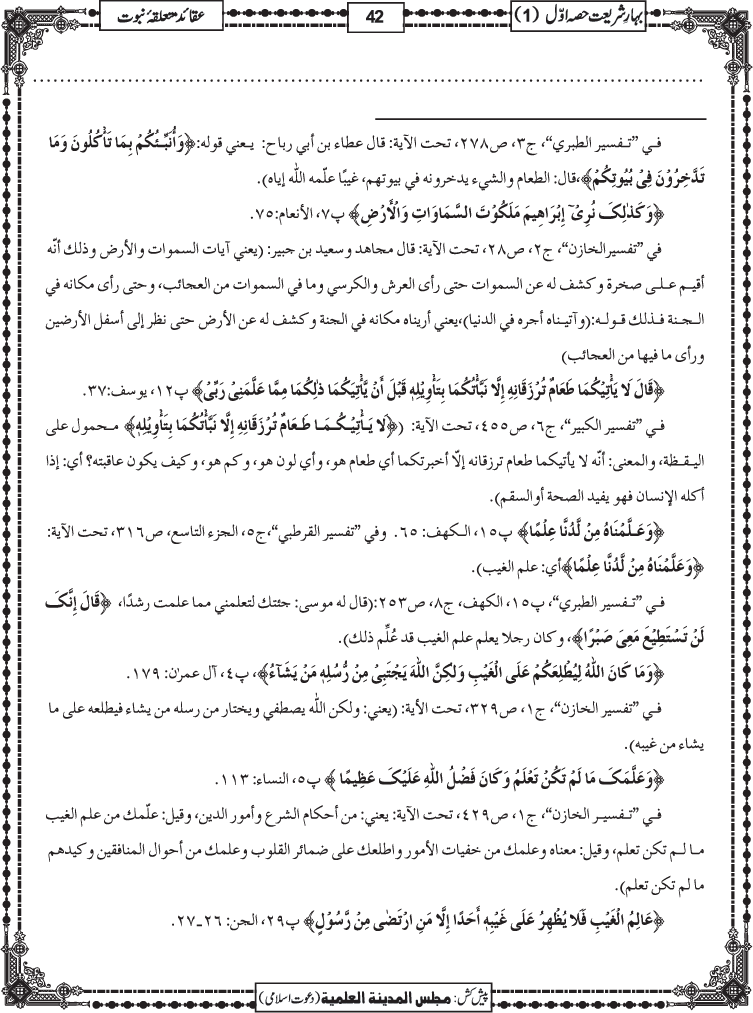 بہارِ شریعت حصہ اوّل (1)
42
عقائد متعلقۂ نبوت
في ”تفسير الطبري“، ج۳، ص۲۷۸، تحت الآية: قال عطاء بن أبي رباح: يعني قوله:﴿وَأُنَبِّئُكُمْ بِمَا تَأْكُلُونَ وَمَا
تَدَّخِرُوْنَ فِیْ بُيُوتِكُمْ﴾،قال: الطعام والشيء يدخرونه في بيوتهم، غيبًا علّمه الله إياه).
﴿وَكَذٰلِکَ نُرِیْۤ إِبْرَاهِيمَ مَلَكُوْتَ السَّمَاوَاتِ وَالْأَرْضِ﴾ پ۷، الأنعام:۷۵.
في ”تفسيرالخازن“، ج۲، ص۲۸، تحت الآية: قال مجاهد وسعيد بن جبير: (يعني آيات السموات والأرض وذلك أنّه
أقيم على صخرة وكشف له عن السموات حتى رأى العرش والكرسي وما في السموات من العجائب، وحتى رأى مكانه في
الجنة فذلك قوله:(وآتيناه أجره في الدنيا)،يعني أريناه مكانه في الجنة وكشف له عن الأرض حتى نظر إلى أسفل الأرضين
ورأى ما فيها من العجائب)
﴿قَالَ لَا يَأْتِيْكُمَا طَعَامٌ تُرْزَقَانِهِ إِلَّا نَبَّأْتُكُمَا بِتَأْوِيْلِهٖ قَبْلَ أَنْ يَّأْتِيَكُمَا ذٰلِكُمَا مِمَّا عَلَّمَنِیْ رَبِّیْ﴾ پ۱۲، يوسف:۳۷.
في ”تفسير الكبير“، ج۶، ص۴۵۵، تحت الآية: (﴿لَا يَأْتِيْكُمَا طَعَامٌ تُرْزَقَانِهِ إِلَّا نَبَّأْتُكُمَا بِتَأْوِيْلِهٖ﴾ محمول على
اليقظة، والمعنى: أنّه لا يأتيكما طعام ترزقانه إلّا أخبرتكما أي طعام هو، وأي لون هو، وكم هو، وكيف يكون عاقبته؟ أي: إذا
أكله الإنسان فهو يفيد الصحة أوالسقم).
﴿وَعَلَّمْنَاهُ مِنْ لَّدُنَّا عِلْمًا﴾ پ۱۵، الكهف: ۶۵. وفي ”تفسير القرطبي“،ج۵، الجزء التاسع، ص۳۱۶، تحت الآية:
﴿وَعَلَّمْنَاهُ مِنْ لَّدُنَّا عِلْمًا﴾أي: علم الغيب).
في ”تفسير الطبري“، پ۱۵، الكهف، ج۸، ص۲۵۳:(قال له موسى: جئتك لتعلمني مما علمت رشدًا، ﴿قَالَ إِنَّکَ
لَنْ تَسْتَطِيْعَ مَعِیَ صَبْرًا﴾، وكان رجلا يعلم علم الغيب قد عُلّم ذلك).
﴿وَمَا كَانَ اللّٰهُ لِيُطْلِعَكُمْ عَلَى الْغَيْبِ وَلٰكِنَّ اللّٰهَ يَجْتَبِیْ مِنْ رُّسُلِهٖ مَنْ يَشَآءُ﴾، پ۴، آل عمرٰن: ۱۷۹.
في ”تفسير الخازن“، ج۱، ص۳۲۹، تحت الآية: (يعني: ولكن الله يصطفي ويختار من رسله من يشاء فيطلعه على ما
يشاء من غيبه).
﴿وَعَلَّمَکَ مَا لَمْ تَكُنْ تَعْلَمُ وَكَانَ فَضْلُ اللّٰهِ عَلَيْکَ عَظِيمًا ﴾ پ۵، النساء: ۱۱۳.
في ”تفسير الخازن“، ج۱، ص۴۲۹، تحت الآية: يعني: من أحكام الشرع وأمور الدين، وقيل: علّمك من علم الغيب
ما لم تكن تعلم، وقيل: معناه وعلمك من خفيات الأمور واطلعك على ضمائر القلوب وعلمك من أحوال المنافقين وكيدهم
ما لم تكن تعلم).
﴿عَالِمُ الْغَيْبِ فَلَا يُظْهِرُ عَلَى غَيْبِهٖ أَحَدًا إِلَّا مَنِ ارْتَضٰى مِنْ رَّسُوْلٍ﴾ پ۲۹، الجن: ۲۶ـ۲۷.
پیش کش: مجلس المدینة العلمیة (دعوت اسلامی)